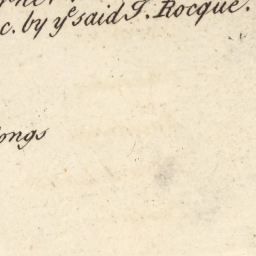 c. by yᵉ said J. Rocque.
ongs